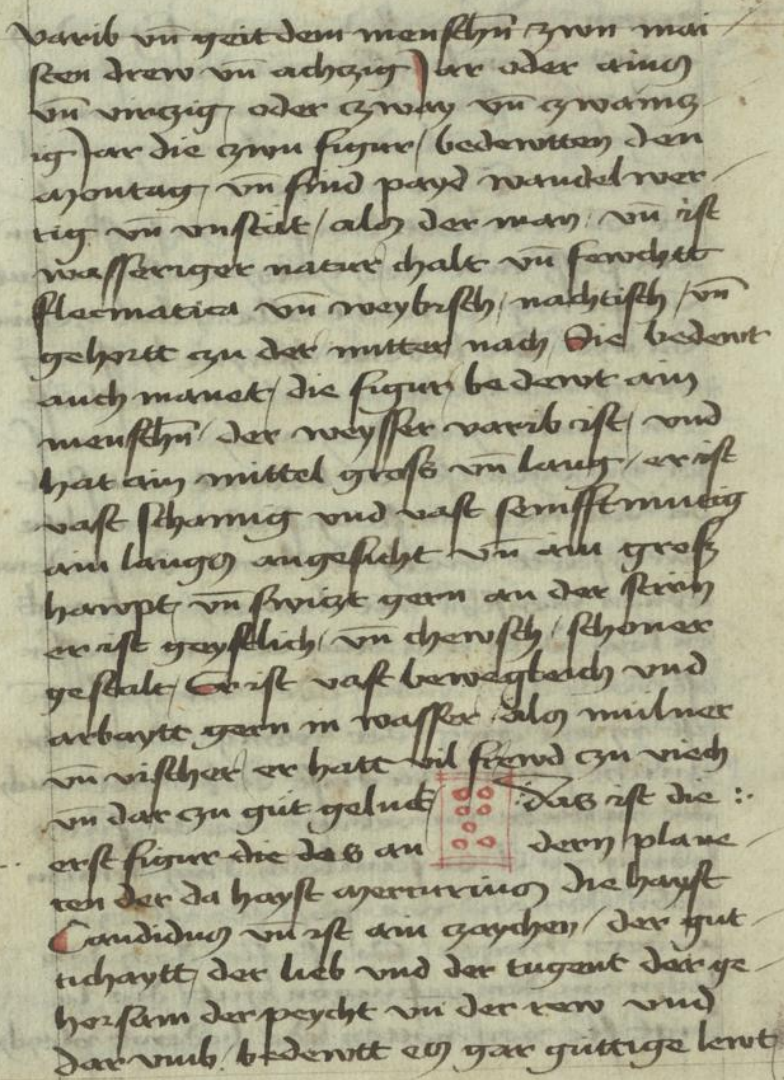 varib vn̄ geit dem menschn̄ zwn mai
sten drew vn̄ achzig Jar oder ains
vn̄ virzig, oder czway vn̄ czwaincz
ig Jar die czwu figur / bedewtten den
montag, vn̄ sind payd wandelwer
tig vn̄ vnstät / als der man / vn̄ ist
wasseriger natur chalt vn̄ fewchtt
flecmatica vn̄ weybisch / nachtisch / vn̄
gehortt czu der mitter nach Sie bedewt
auch manet, die figur bedewt ain
menschn̄ / der weysser varib ist / vnd
hat ain mittel gross vn̄ lang / er ist
vast schamig vnd vast semfftmutig
ain langs angesicht vn̄ ain gross
hawpt, vn̄ swiczt gern an der stirn
er ist geystlich / vn̄ chewsch / schoner
gestalt, Er ist vast bewegleich vnd
arbaytt gern in wasser als mulner
vn̄ vischer er hatt vil frewd czu viech
vn̄ dar czu gut geluck das ist die :·
erst figur die das an dern plane
ten der da hayst mercurius die hayst
Candidus vn̄ ist ain czaychen / der gut
tichaytt, der lieb vnd der tugent der ge
horsam der peycht vn̄ der rew vnd
dar vmb / bedewtt es gar guttige lewt